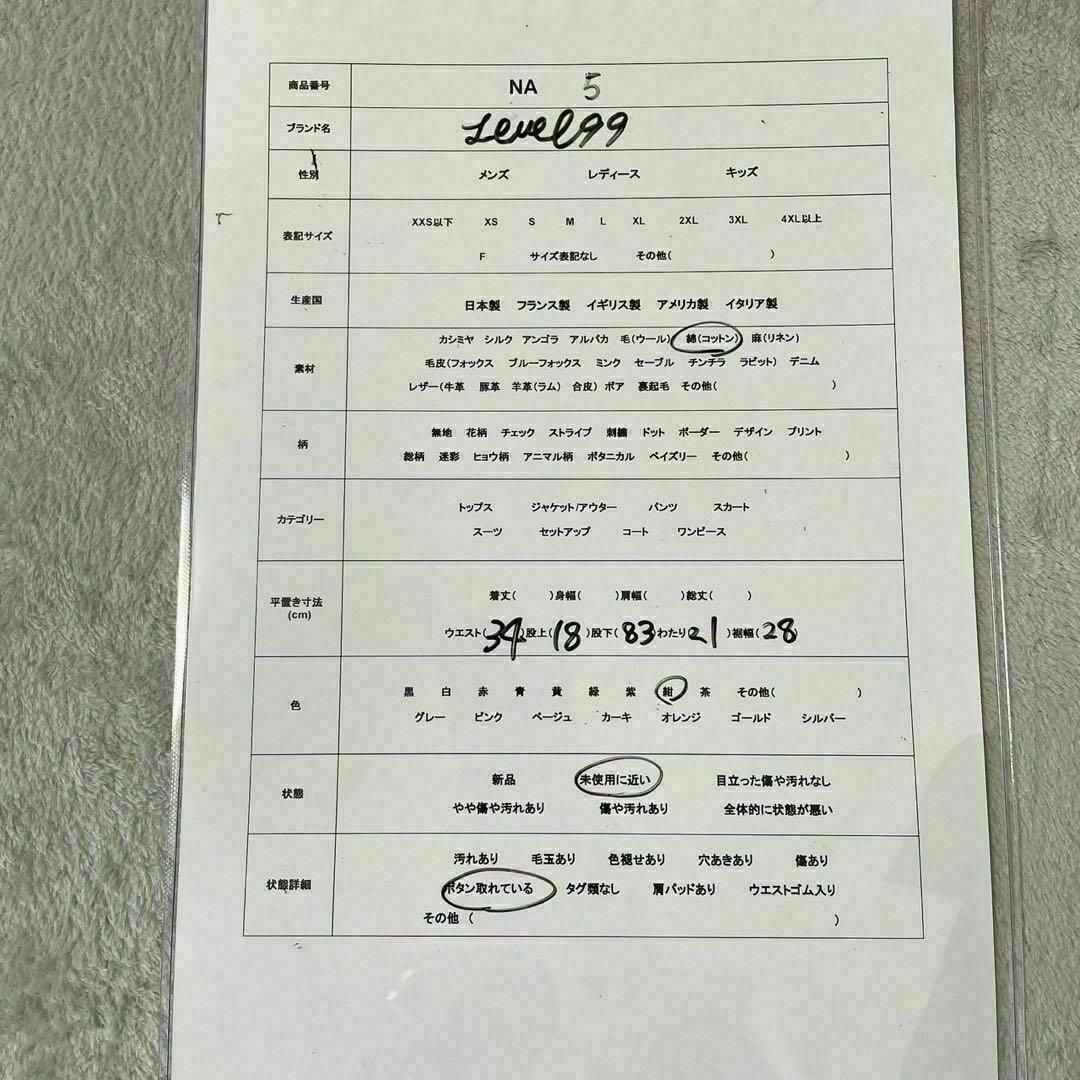 商品番号 NA 5
ブランド名 Level99
性別 メンズ レディース キッズ
表記サイズ XXS以下 XS S M L XL 2XL 3XL 4XL以上
F サイズ表記なし その他( )
生産国 日本製 フランス製 イギリス製 アメリカ製 イタリア製
素材 カシミヤ シルク アンゴラ アルパカ 毛(ウール) 綿(コットン) 麻(リネン)
毛皮(フォックス ブルーフォックス ミンク セーブル チンチラ ラビット) デニム
レザー(牛革 豚革 羊革(ラム) 合皮) ボア 裏起毛 その他( )
柄 無地 花柄 チェック ストライプ 刺繍 ドット ボーダー デザイン プリント
総柄 迷彩 ヒョウ柄 アニマル柄 ボタニカル ペイズリー その他( )
カテゴリー トップス ジャケット/アウター パンツ スカート
スーツ セットアップ コート ワンピース
平置き寸法
(cm)
着丈( )身幅( )肩幅( )総丈( )
ウエスト(34)股上(18)股下(83)わたり(21)裾幅(28
色 黒 白 赤 青 黄 緑 紫 紺 茶 その他( )
グレー ピンク ベージュ カーキ オレンジ ゴールド シルバー
状態 新品 未使用に近い 目立った傷や汚れなし
やや傷や汚れあり 傷や汚れあり 全体的に状態が悪い
状態詳細 汚れあり 毛玉あり 色褪せあり 穴あきあり 傷あり
ボタン取れている タグ類なし 肩パッドあり ウエストゴム入り
その他 ( )